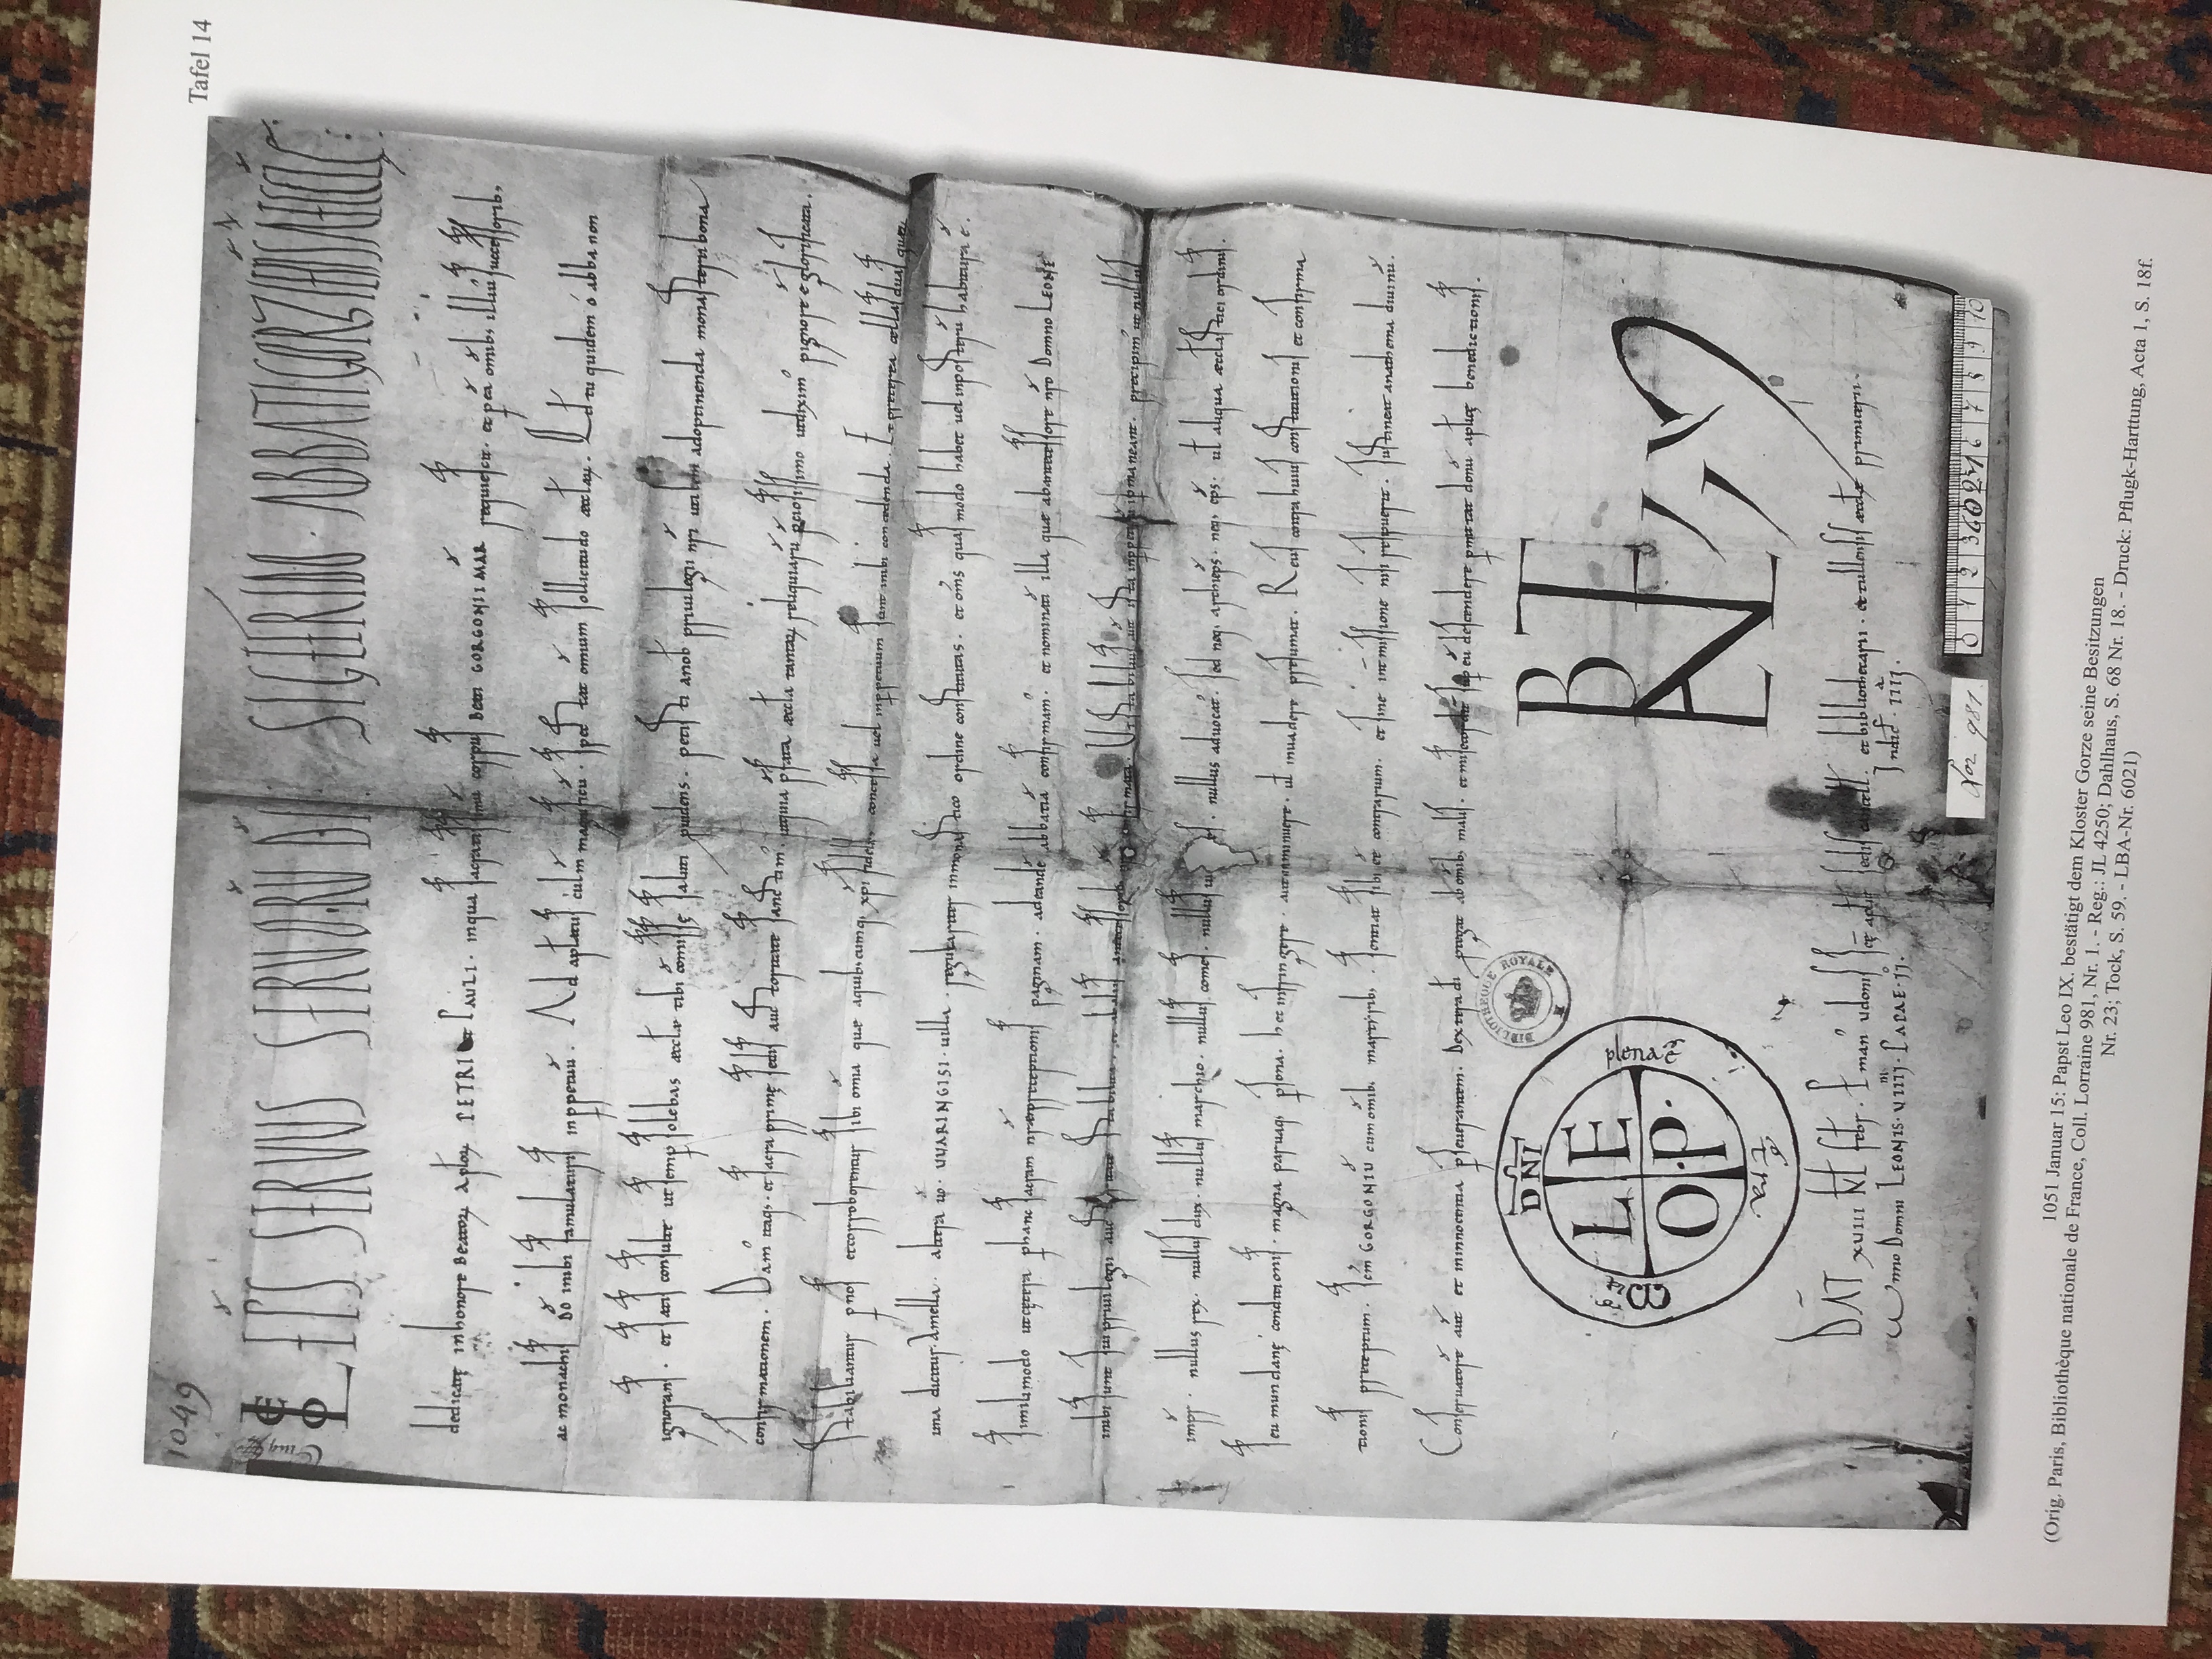 1049
Tafel 14
LEO EP̄S SERVUS SERVORŪ DĪ SIGEFRIDO · ABBATI GORZIENSIS AECCLĘ:
dedicatę in honore Beatoꝝ Aploꝝ PETRI et PAULI · in qua sacratissimū corpus Beati GORGONII MAR̄ requiescit · et p eā omīb; illiꝰ successorib;
ac monachis Dō inibi famulaturis in ppetuū · Ad aplatus culm̄ magnificū · spectat omium sollicitudo æcclaꝝ · Qđ tu quidem ó abba non
ignorans · et satis consulte ut semp solebas æcclæ tibi cōmissę saluti puidens · petisti a nob privilegii nr̄i utilem ad optinenda monasterii bona
confirmationem · Damꝰ itaq; · et sacra primę sedis auctoritate sanctimꝰ · ut quia p̄fata æccla tantaꝝ reliquiarū p̄ciosissimo ut diximꝰ pignore ē glorificata ·
Stabiliantur p nos et corroborentur sibi om̄ia quæ a quib;cumq; xp̄i fidelib; concessa vel in ppetuum sunt inibi concedenda · Et preterea cellas duas quaꝝ
una dicitur · Amella · altera ūo · VVARINGISI · uilla · regulariter in monastico ordine constitutas · et om̄s quas modo habet uel in posterū habitura ē ·
Simili modo ut cętera p hanc sacram nr̄æ preceptionis paginam · ad eandē abbatiā confirmamꝰ · et nominatī illa quæ ab antecessore nr̄o Domno LEONE
inibi sunt sui privilegii auctoritate stabilita · et ab aliis antecessorib; confirmata · Ut stabilius aūt ista in ppetuū pmaneant · precipimꝰ ut nullus
impr · nullus rex · nullus dux · nullus marchio · nullus comes · nullus · nullus advocatꝰ · sed neq; archiep̄s · neq; ep̄s · ul aliqua æcclastici ordinis ·
seu mundanę conditionis · magna parvaq; psona · hęc infringere · aut imminuere · ul invadere presumat · Reus contra huius constitutionis et confirma
tionis preceptum · Scm̄ GORGONIŪ cum omīb; martirib; · sentiat sibi eē contrarium · et sine int̄missione nisi respuerit · sustineat anathema divinū ·
Conservatorē aūt et in innocentia pseverantem · Dextera dī protegat ab omīb; malis · et misericordit̄ sup eū descendere pmittat donū aplicę benedictionis ·
DN̄I
L E
O · P ·
plena ē
tra
BIBLIOTHEQUE ROYALE
DAT̄ XVIIII KL̄ febr · P manꝰ Udonis scę aplicę sedis cancell · et bibliothecarii · et tullensis æcclæ primicerii ·
Anno Domni LEONIS · VIIII · PAPAE · II · Indic̄ · IIII ·
Lor 981
0 1 2 3 6021 6 7 8 9 10
1051 Januar 15: Papst Leo IX. bestätigt dem Kloster Gorze seine Besitzungen
(Orig. Paris, Bibliothèque nationale de France, Coll. Lorraine 981, Nr. 1. - Reg.: JL 4250; Dahlhaus, S. 68 Nr. 18. - Druck: Pflugk-Harttung, Acta 1, S. 18f.
Nr. 23; Tock, S. 59. - LBA-Nr. 6021)